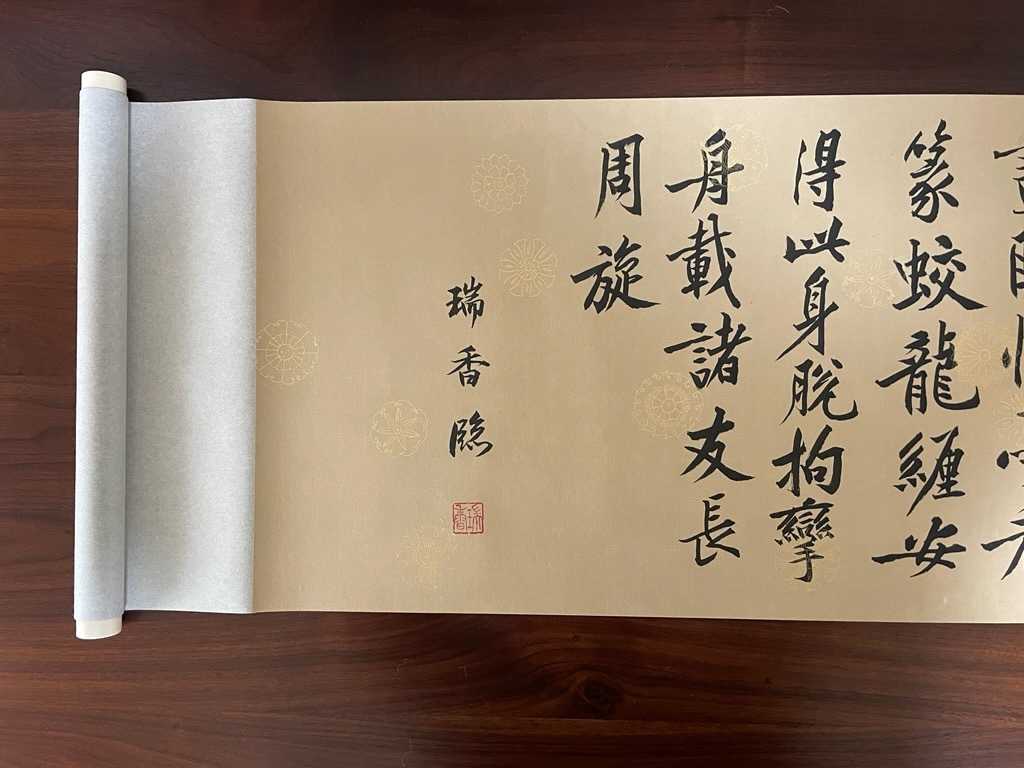 篆蛟龍纏安
得此身脫拘攣
舟載諸友長
周旋
瑞香臨
瑞香